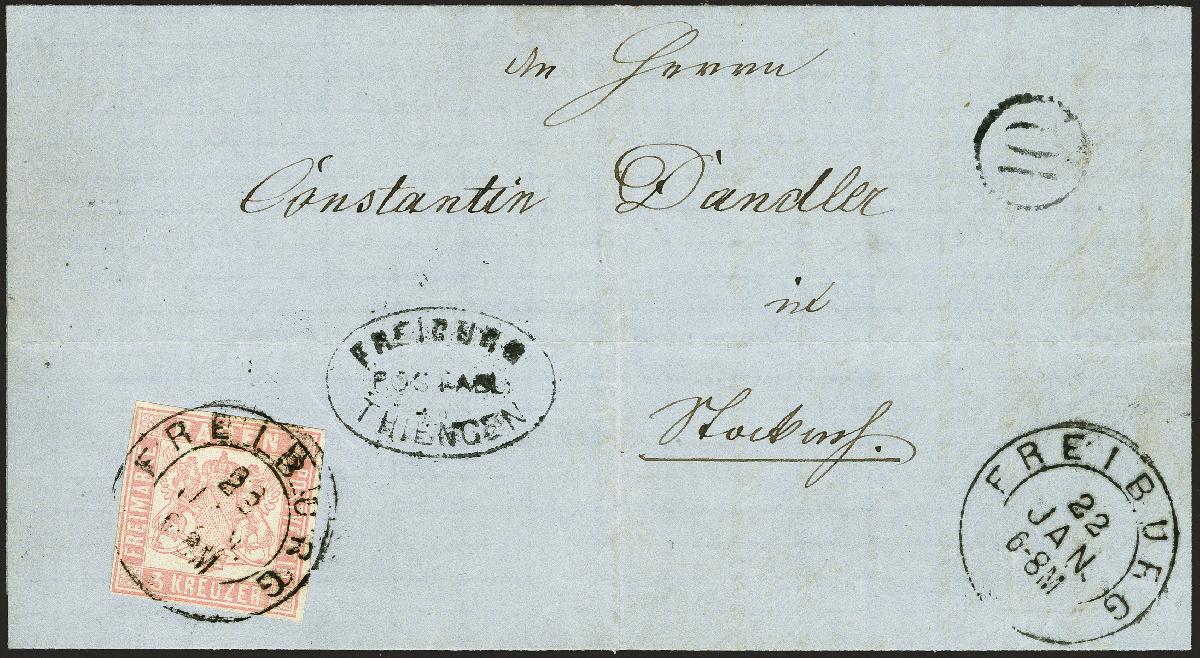 An Herrn
10
Constantin Dandler
in
Stockach.
FREIBURG
POSTABL.
THIENGEN
BADEN
FREIMARKE
3 KREUZER
FREIBURG
FREIBURG
22
JAN.
6-8M